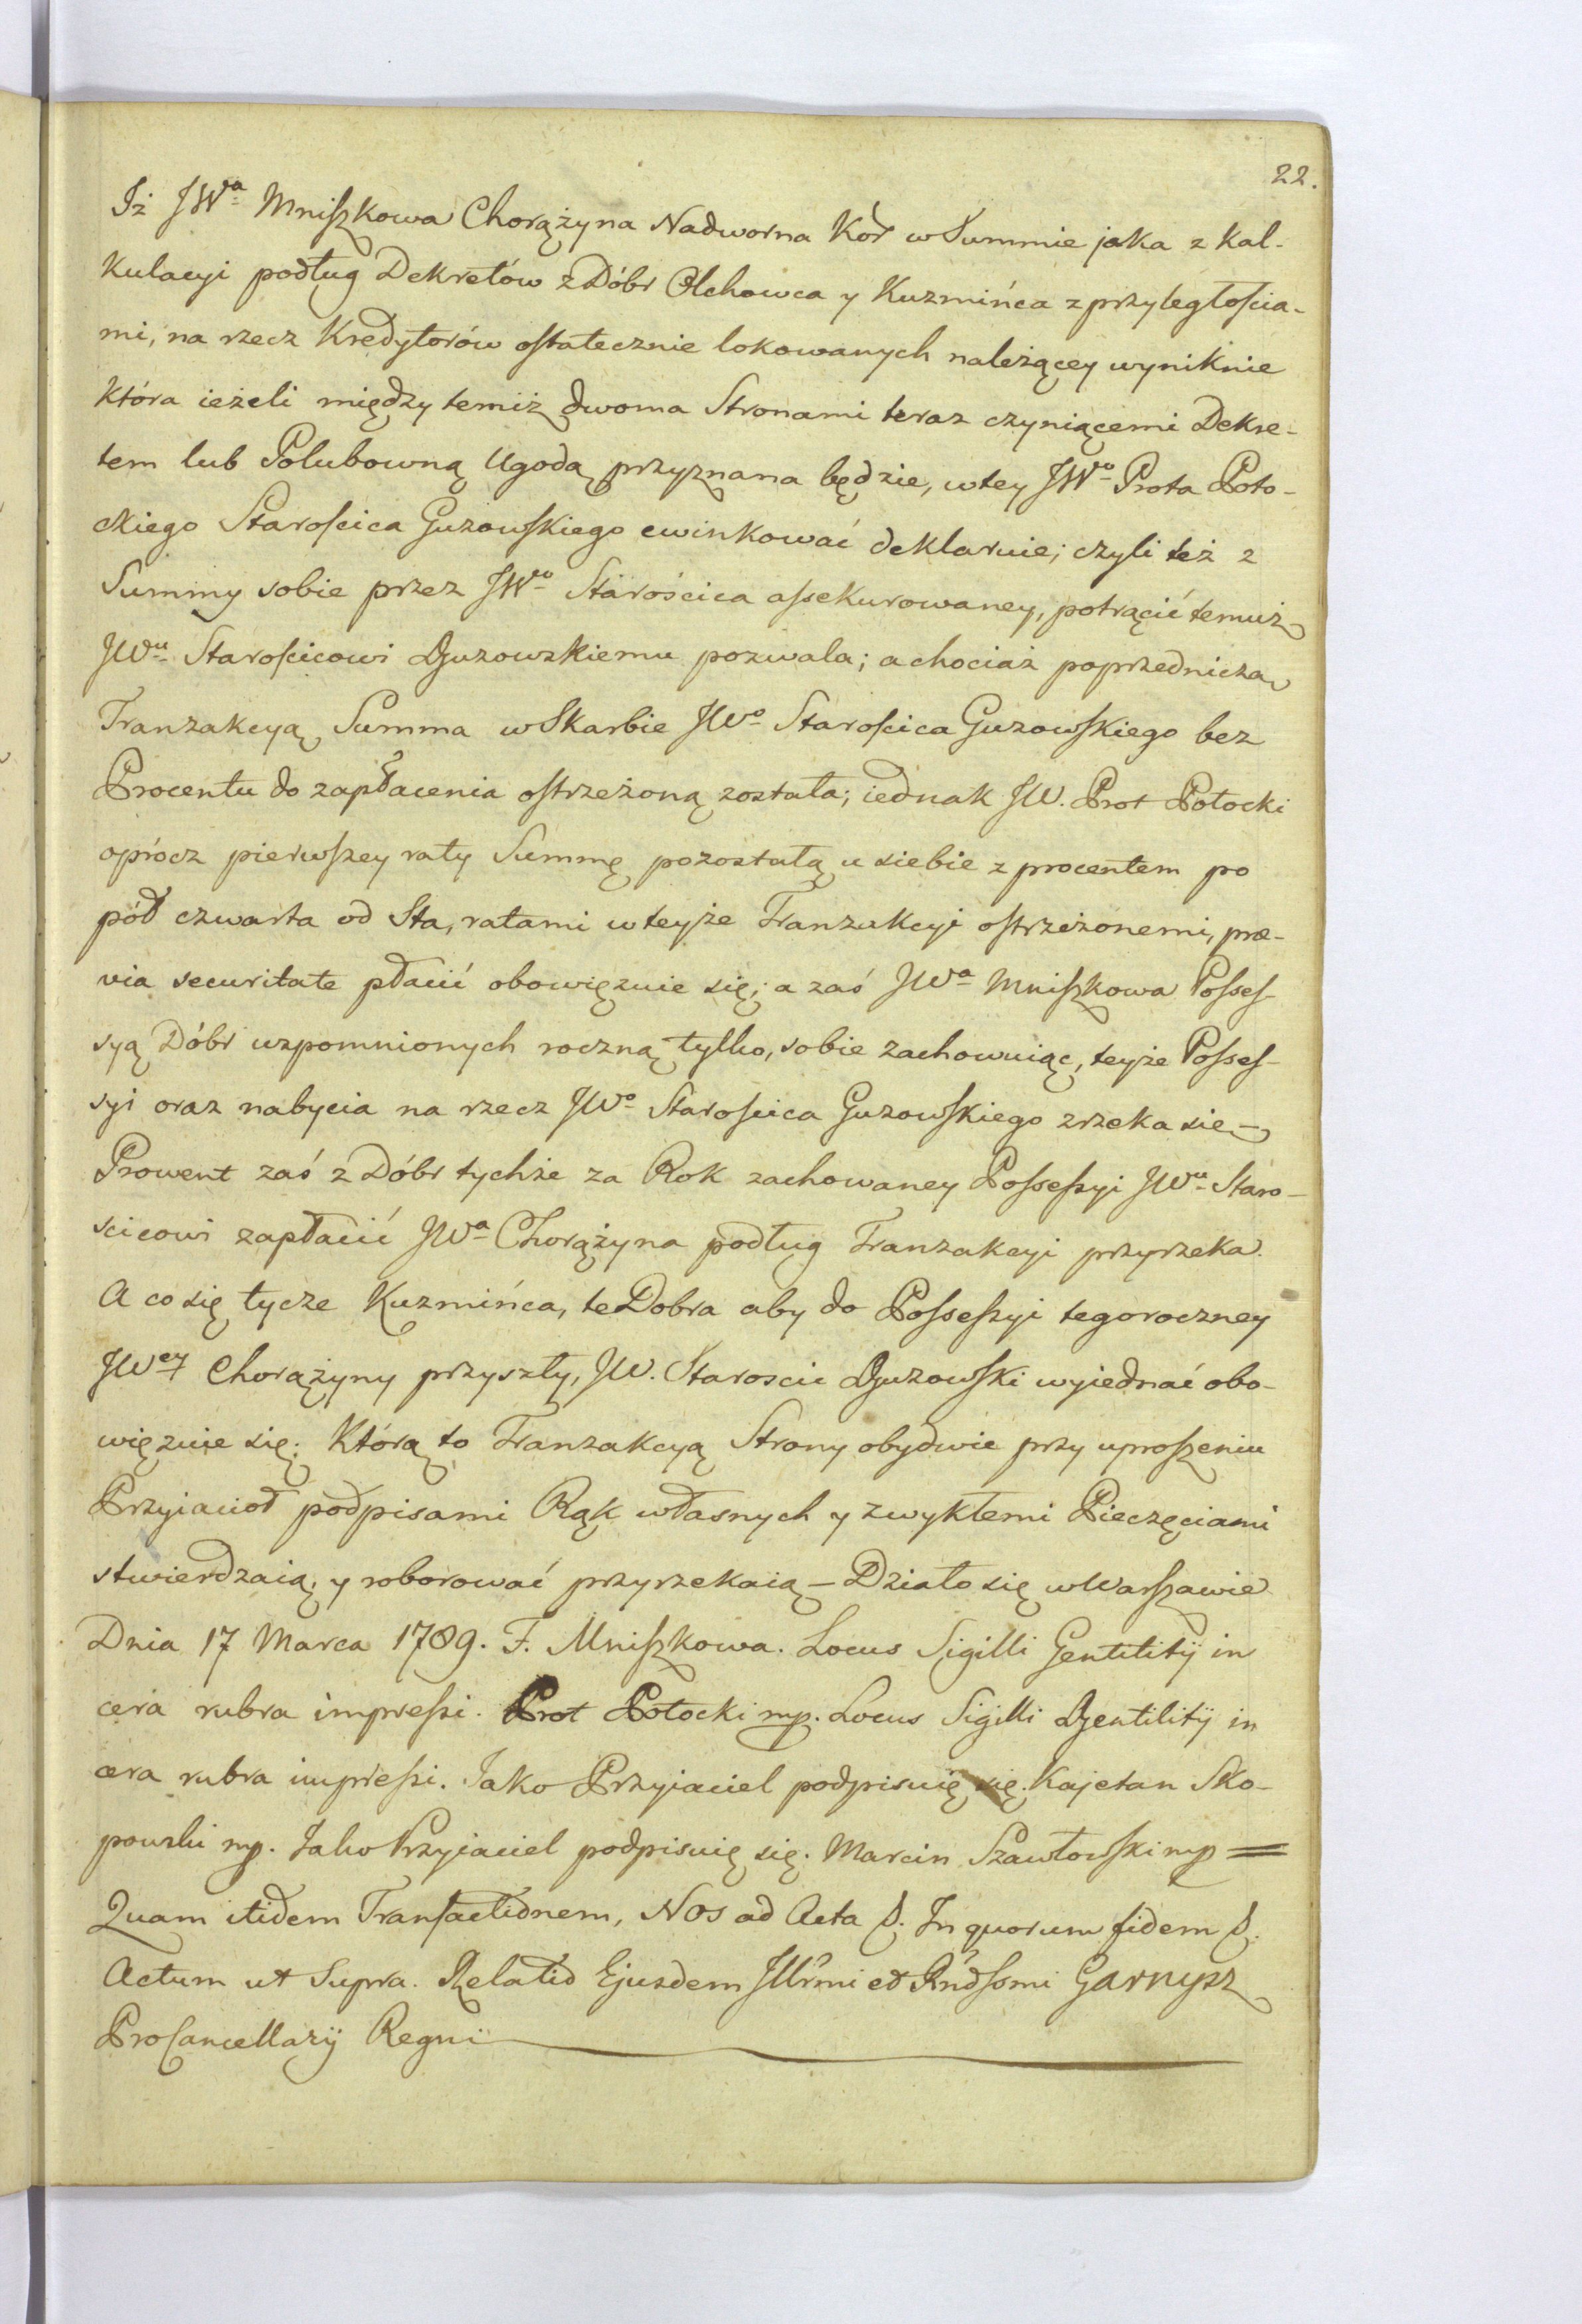 22.
Iż JWa Mniszkowa Chorążyna Nadworna Kor w Summie jaka z kal-
kulacyi podług Dekretów z Dóbr Olchowca y Kuzmińca z przyległościa-
mi, na rzecz Kredytorów ostatecznie lokowanych należącey wyniknie
która ieżeli między temiż dwoma Stronami teraz czyniącemi Dekre-
tem lub Polubowną Ugodą przyznana będzie, w tey JWo Prota Poto-
ckiego Starościca Guzowskiego ewinkować deklaruie; czyli też z
Summy sobie przez JWo Starościca assekurowaney, potrącić temuż
JWu Starościcowi Guzowskiemu pozwala; a chociaż poprzedniczą
Tranzakcyą Summa w Skarbie JWo Starościca Guzowskiego bez
Procentu do zapłacenia ostrzeżoną została; iednak JW. Prot Potocki
oprócz pierwszey raty Summę pozostałą u siebie z procentem po
pół czwarta od Sta, ratami w teyże Tranzakcyi ostrzeżonemi, præ-
via securitate płacić obowięzuie się; a zaś JWa Mniszkowa Posses-
syą Dóbr wzpomnionych roczną tylko, sobie zachowuiąc, teyże Posses-
syi oraz nabycia na rzecz JWo Starościca Guzowskiego zrzeka się –
Prowent zaś z Dóbr tychże za Rok zachowaney Possessyi JWu Staro-
scicowi zapłacić JWa Chorążyna podług Tranzakcyi przyrzeka.
A co się tycze Kuzmińca, te Dobra aby do Possessyi tegoroczney
JWey Chorążyny przyszły, JW. Starościc Guzowski wyiednać obo-
więzuie się; Którą to Tranzakcyą Strony obydwie przy uproszeniu
Przyiacioł podpisami Rąk własnych y zwykłemi Pieczęciami
stwierdzaią, y roborować przyrzekaią – Działo się w Warszawie
Dnia 17 Marca 1789. F. Mniszkowa. Locus Sigilli Gentilitij in
cera rubra impressi. Prot Potocki mp. Locus Sigilli Gentilitij in
cera rubra impressi. Jako Przyiaciel podpisuię się. Kajetan Sko-
powski mp. Jako Przyiaciel podpisuię się. Marcin Szawłowski mp =
Quam itidem Transactionem, Nos ad Acta &. In quorum fidem &.
Actum ut Supra. Relatio Ejusdem Illrmi et Rndssmi Garnysz
ProCancellarij Regni